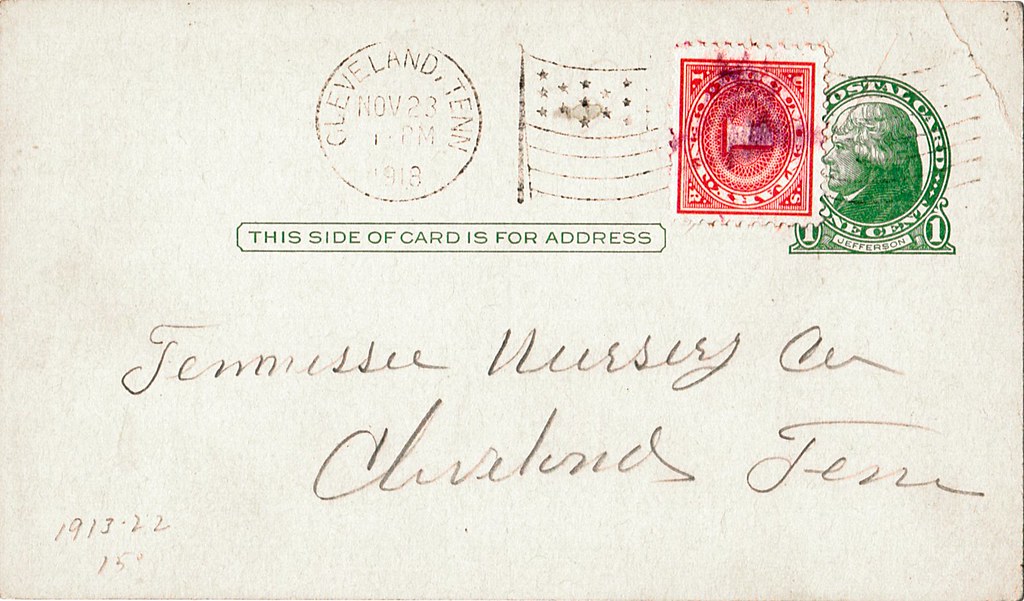 CLEVELAND, TENN
NOV 23
PM
U S I R
1
POSTAL CARD
ONE CENT
1 JEFFERSON 1
THIS SIDE OF CARD IS FOR ADDRESS
Tennessee Nursery Co
Cleveland Tenn
1913-22
15